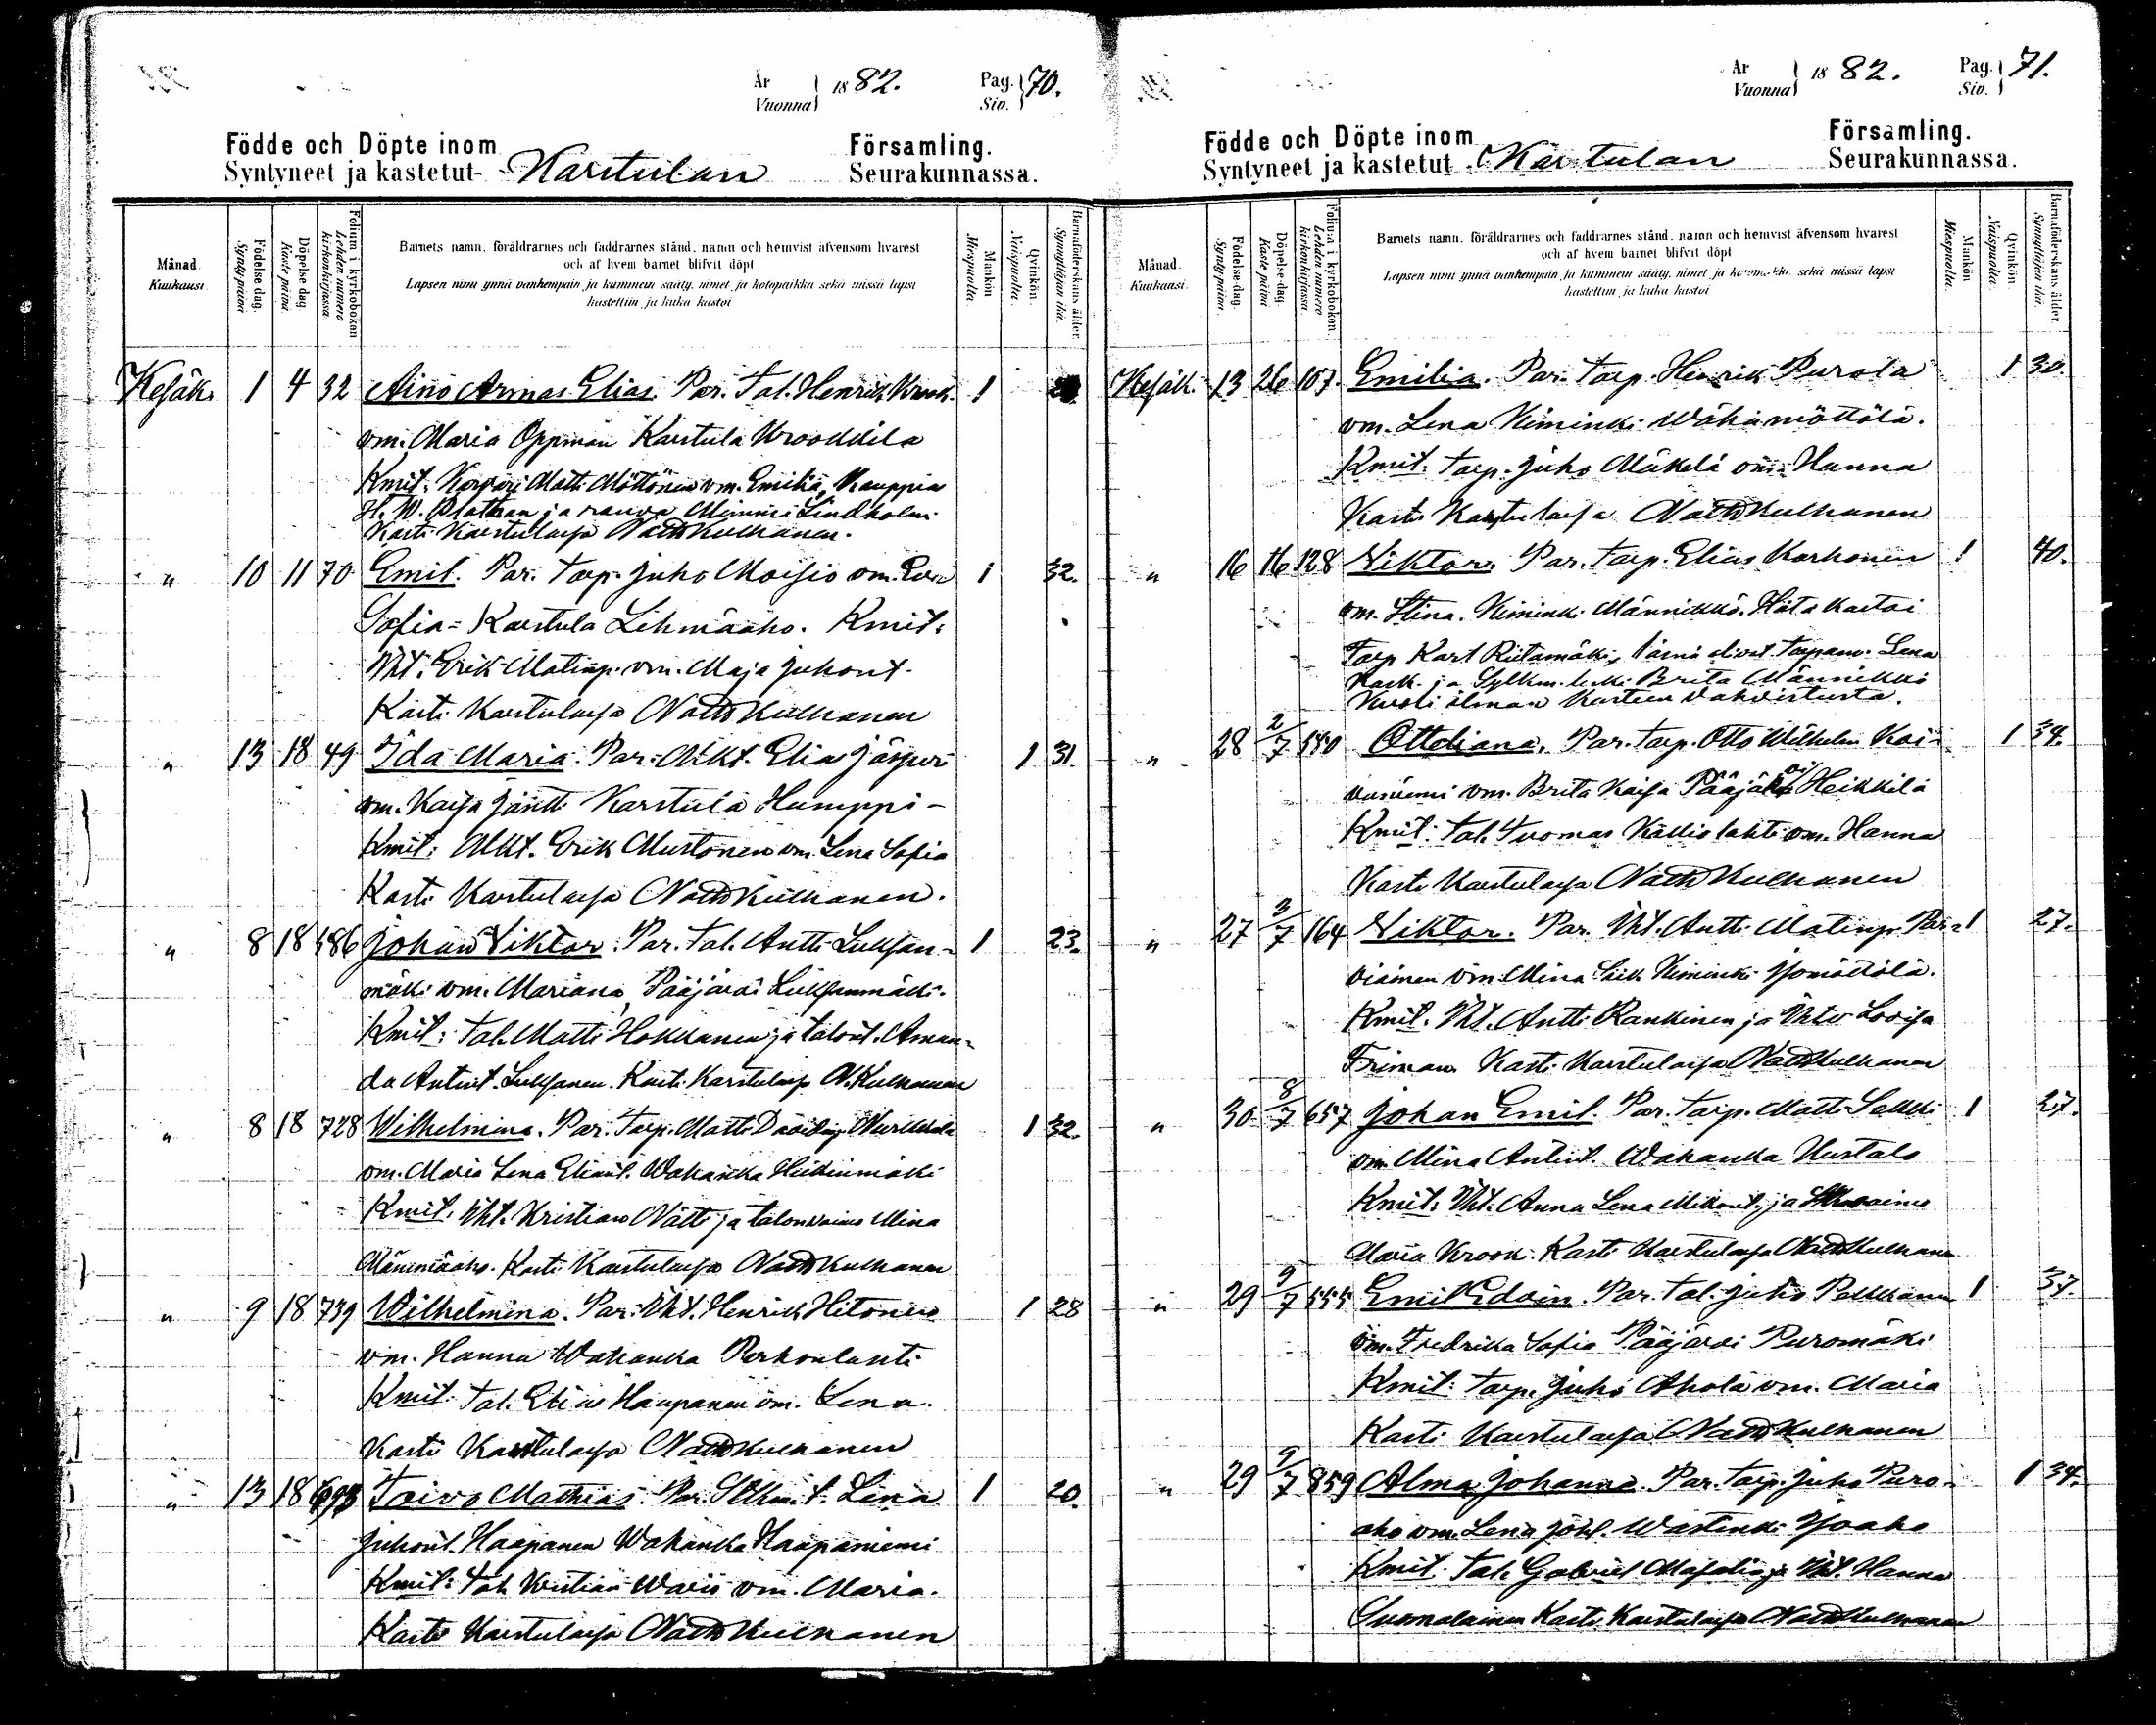 År Vuonna 1882. Pag. Siv. 70.
Födde och Döpte inom Församling.
Syntyneet ja kastetut Karstulan Seurakunnassa.
Månad. Kuukausi.
Födelse dag. Synty päivä
Döpelse dag. Kaste päivä
Folium i kyrkoboken Lehden numero kirkonkirjassa.
Barnets namn. föräldrarnes och faddrarnes stånd. namn och hemvist äfvensom hvarest
och af hvem barnet blifvit döpt
Lapsen nimi ynnä vanhempain ja kummein sääty. nimet ja kotopaikka sekä missä lapsi
kastettiin ja kuka kastoi
Mankön Miespuolia.
Qvinkön. Naispuolia.
Barnaföderskans ålder. Synnyttäjän ikä.
Kesäk. 1 4 32 Aino Armas Elias. Par. Tal. Henrik Krook. 1
vm. Maria Oppman Karstula Krookkila
Kmit: Matti Möttönen vm. Emilia, Kauppias
H. W. ja rouva Mimmi Lindholm
Kasti Karstulassa Natth Kulhanen.
" 10 11 70 Emil. Par. Torp. Juho Moisio vm. Eva 1 32.
Sofia = Karstula Lihmäaho. Kmit:
Iht. Erik Matinp. vm. Maja Juhont.
Kasti Karstulassa Natth Kulhanen
" 13 18 49 Ida Maria. Par. Mkt. Elia Jäsperi 1 31.
vm. Kaisa Jäntti Karstula Humppi-
Kmit: Mkt. Erik Mustonen vm. Lena Sofia
Kasti Karstulassa Natth Kulhanen.
" 8 18 486 Johan Viktor. Par. Tal. Antti Lukjan- 1 23.
mäki vm. Mariana, Pääjärvi Lukjanmäki.
Kmit: Tal. Matti Hokkanen ja talont. Aman-
da Antint. Lukjanen. Kasti Karstulassa N. Kulhanen
" 8 18 728 Wilhelmina. Par. Torp. Matti Davidinp. 1 32.
vm. Maria Lena Eliant. Wahanka Heikinmäki
Kmit. Iht. Kristian Nätti ja talonvaimo Mina
Männmäaho. Kasti Karstulassa Natth Kulhanen
" 9 18 739 Wilhelmina. Par. Iht. Henrik Hitonen 1 28
vm. Hanna Wahanka Perkonlahti
Kmit: Tal. Elias Haapanen vm. Lena.
Kasti Karstulassa Natth Kulhanen
" 13 18 693 Toivo Mathias. Par. Lena 1 20.
Juhont. Haapanen Wahanka Haapaniemi
Kmit: Tal. Kristian vm. Maria.
Kasti Karstulassa Natth Kulhanen
År Vuonna 1882. Pag. Siv. 71.
Födde och Döpte inom Församling.
Syntyneet ja kastetut Karstulan Seurakunnassa.
Månad. Kuukausi.
Födelse-dag. Synty päivä.
Döpelse-dag. Kaste päivä
Folium i kyrkoboken. Lehden numero kirkonkirjassa.
Barnets namn. föräldrarnes och faddrarnes stånd. namn och hemvist äfvensom hvarest
och af hvem barnet blifvit döpt
Lapsen nimi ynnä vanhempain ja kummein sääty. nimet ja kotopaikka sekä missä lapsi
kastettiin ja kuka kastoi
Mankön Miespuolia.
Qvinkön. Naispuolia.
Barnaföderskans ålder. Synnyttäjän ikä.
Kesäk. 13 26 107. Emilia. Par. Torp. Henrik Purola 1 30.
vm. Lena Kiminki Wähämöttölä.
Kmit: Torp. Juho Mäkelä vm. Hanna
Kasti Karstulassa Natth Kulhanen
" 16 16 128 Viktor. Par. Torp. Elias Korhonen 1 40.
vm. Stina. Kiminki Männikkö. Hätä kastoi
Torp Karl Riitamäki, läsnä olivat Torpanv. Lena
Kask. ja leski Brita Männikkö
Kuoli ilman kasteen vahvistusta.
" 28 2/7 540 Ottoliana. Par. Torp. Otto Wilhelm Koi- 1 34.
vuniemi vm. Brita Kaisa Pääjärvi Heikkilä
Kmit: Tal. Tuomas Källiolahti vm. Hanna
Kasti Karstulassa Natth Kulhanen
" 27 3/7 164 Viktor. Par. Iht. Antti Matinp. Par- 1 27.
viainen vm. Mina Kiminki Isomöttölä.
Kmit. Iht. Antti Rankinen ja Lovisa
Friman. Kasti Karstulassa Natth Kulhanen
" 30 8/7 657 Johan Emil. Par. Torp. Matti Selkki 1 27.
vm Mina Antint. Wahanka Kustala
Kmit: Iht. Anna Lena Mikont. ja
Maria Krook. Kasti Karstulassa Natth Kulhanen
" 29 9/7 555 Emil Edvin. Par. Tal. Juho Pekkanen 1 37.
vm. Fredrika Sofia Pääjärvi Puromäki
Kmit: Torp. Juho Ahola vm. Maria
Kasti Karstulassa Natth Kulhanen
" 29 9/7 859 Alma Johanna. Par. Torp. Juho Puro- 1 34.
aho vm. Lena Joh. Wastinki Isoaho
Kmit. Tal. Gabriel ja Iht. Hanna
Suomalainen Kasti Karstulassa Natth Kulhanen